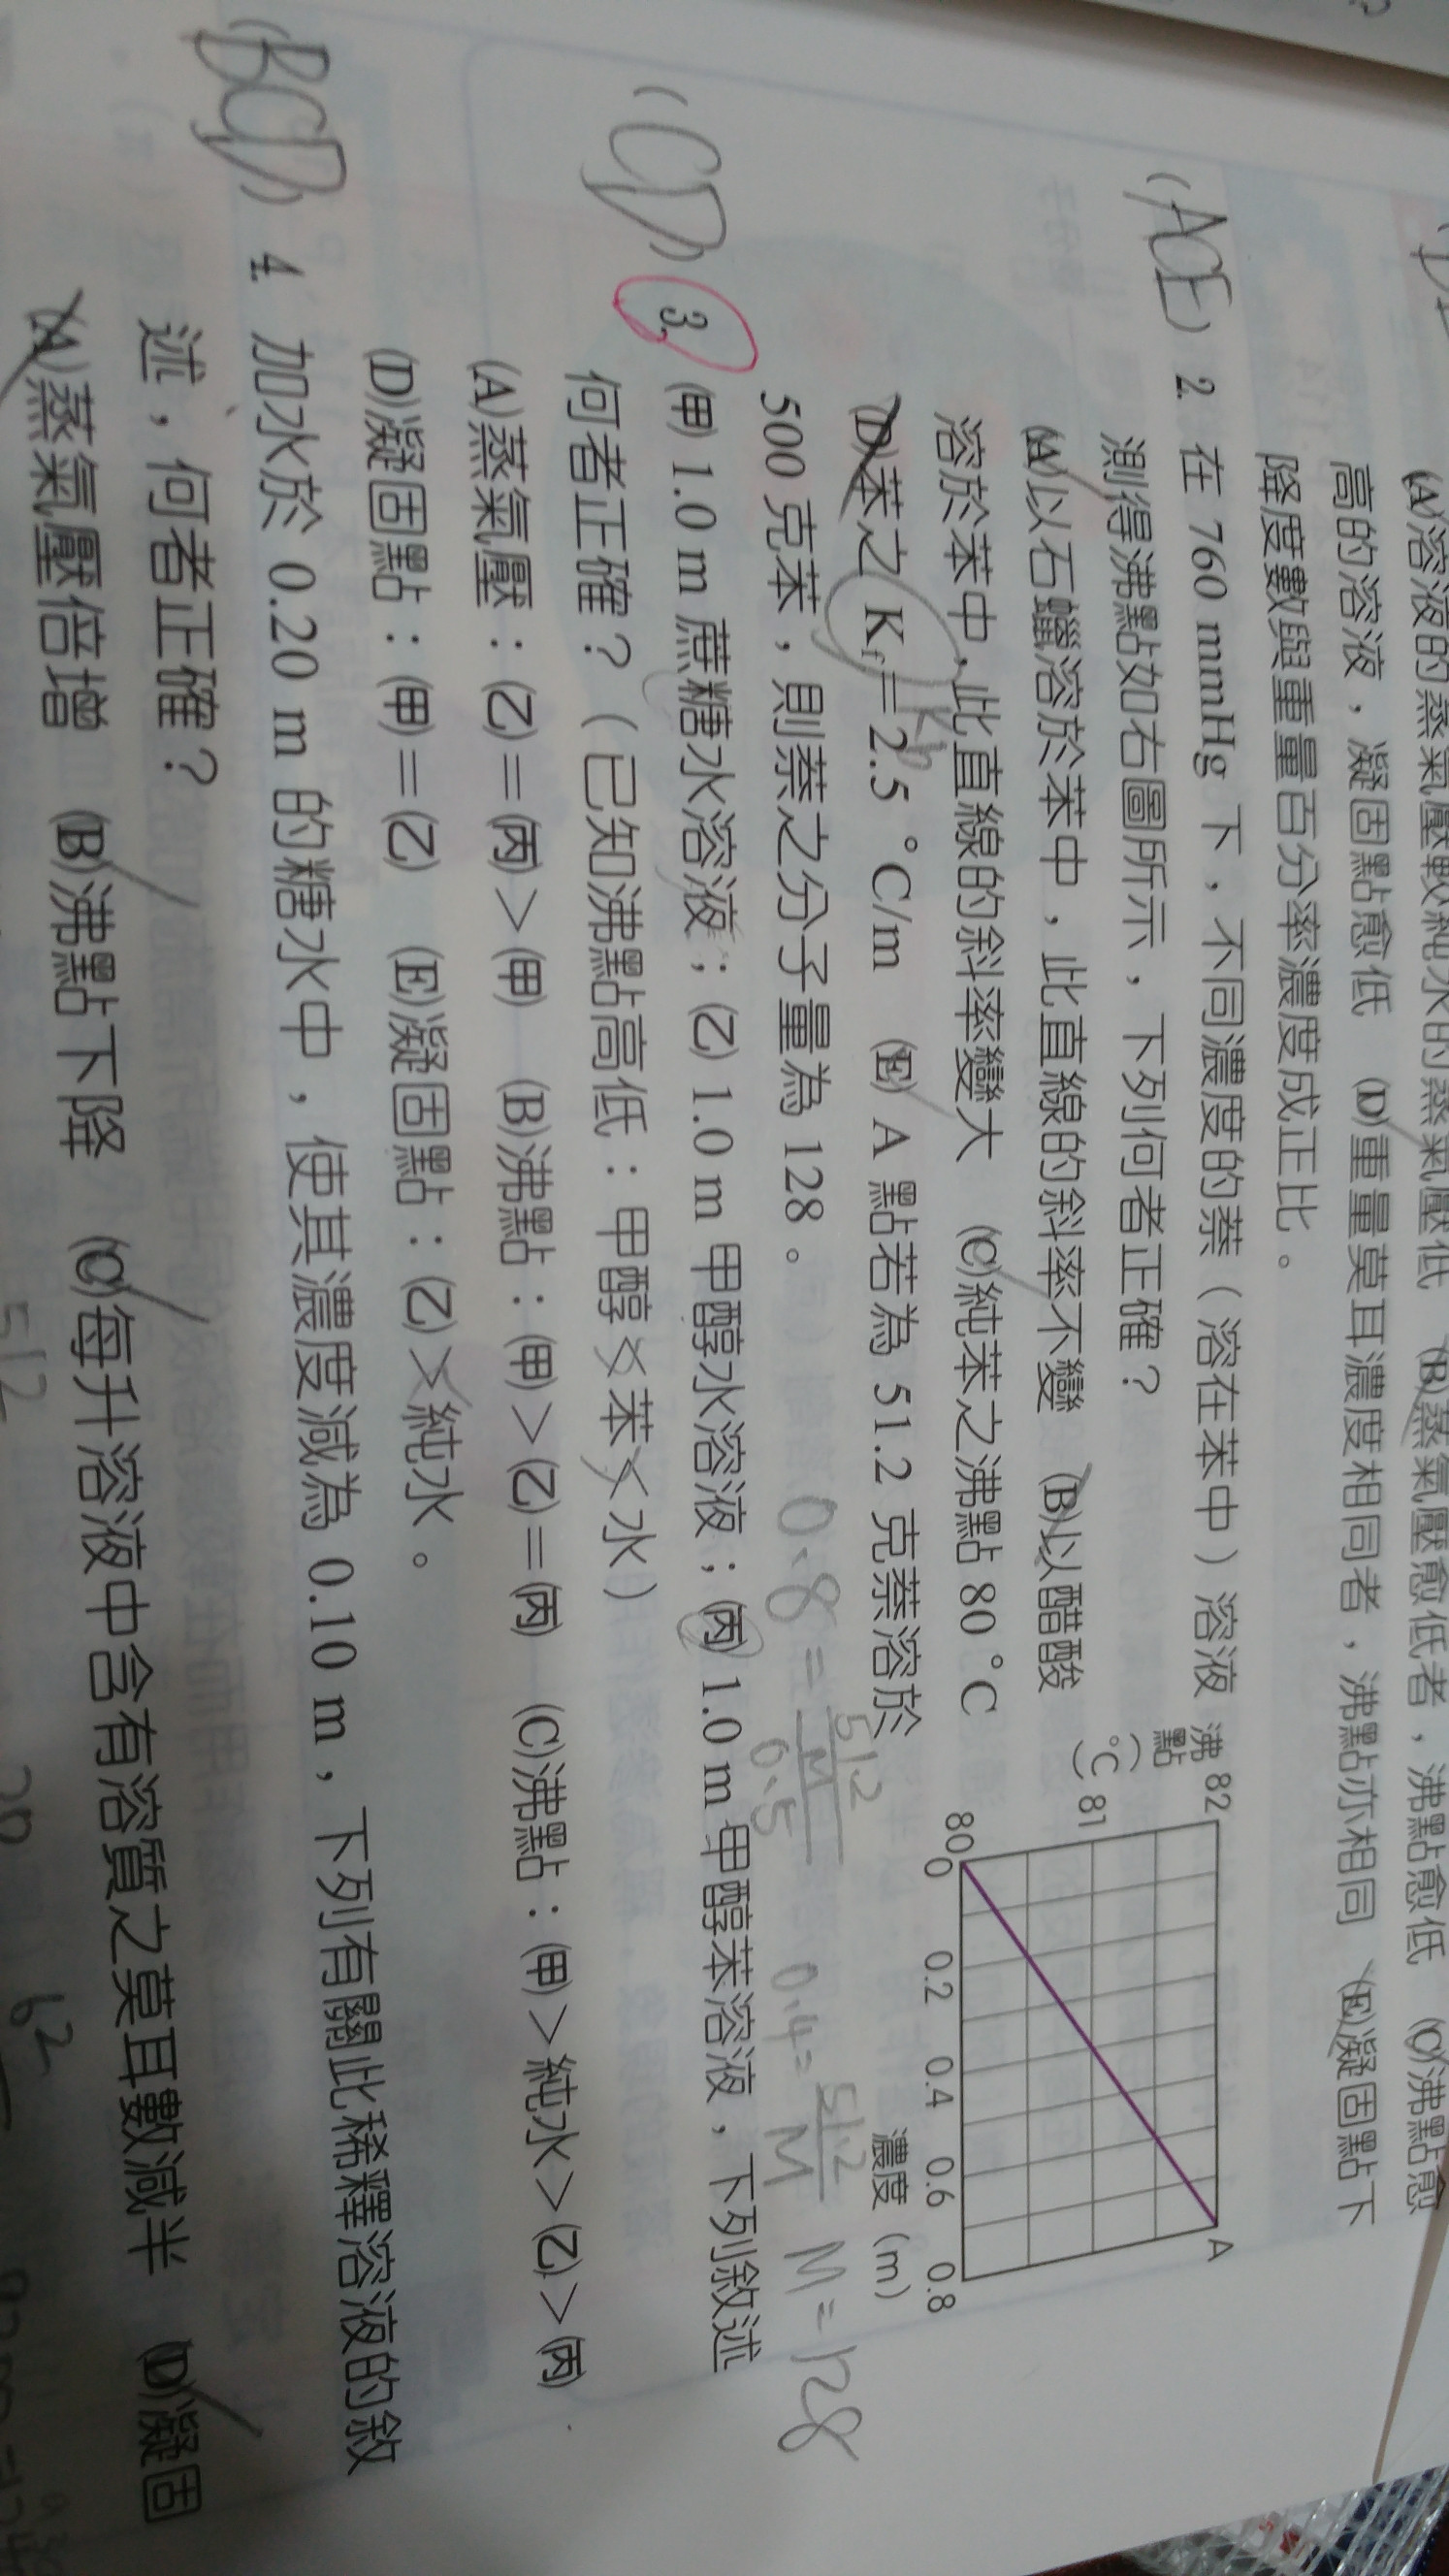 (A)溶液的蒸氣壓較純水的蒸氣壓低 (B)蒸氣壓愈低者，沸點愈低 (C)沸點愈
高的溶液，凝固點愈低 (D)重量莫耳濃度相同者，沸點亦相同 (E)凝固點下
降度數與重量百分率濃度成正比。
(ACE) 2. 在 760 mmHg 下，不同濃度的萘（溶在苯中）溶液
測得沸點如右圖所示，下列何者正確？
(A)以石蠟溶於苯中，此直線的斜率不變 (B)以醋酸
溶於苯中，此直線的斜率變大 (C)純苯之沸點 80 °C
(D)苯之 Kf＝2.5 °C/m (E) A 點若為 51.2 克萘溶於
Kb
500 克苯，則萘之分子量為 128。
沸點(°C)
82
81
80
0 0.2 0.4 0.6 0.8
A
濃度（m）
0.8 = 51.2/M / 0.5
0.4 = 51.2/M M = 128
(CD) 3. (甲) 1.0 m 蔗糖水溶液；(乙) 1.0 m 甲醇水溶液；(丙) 1.0 m 甲醇苯溶液，下列敘述
何者正確？（已知沸點高低：甲醇＜苯＜水）
(A)蒸氣壓：(乙)＝(丙)＞(甲) (B)沸點：(甲)＞(乙)＝(丙) (C)沸點：(甲)＞純水＞(乙)＞(丙)
(D)凝固點：(甲)＝(乙) (E)凝固點：(乙)＞純水。
(BCD) 4. 加水於 0.20 m 的糖水中，使其濃度減為 0.10 m，下列有關此稀釋溶液的敘
述，何者正確？
(A)蒸氣壓倍增 (B)沸點下降 (C)每升溶液中含有溶質之莫耳數減半 (D)凝固
512